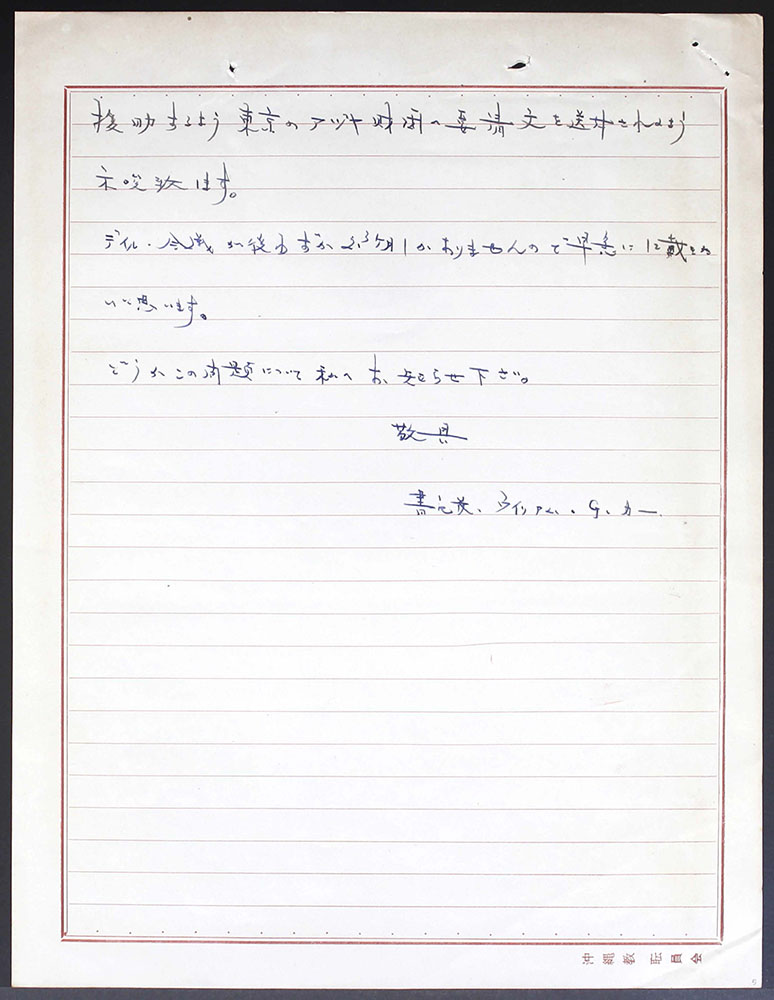 援助するよう東京のアジヤ財団へ要請文を送付されるよう
示唆致します。
デイル・会議が後わずか2,3ケ月しかありませんので早急に
いと思います。
どうかこの問題について私へお知らせ下さい。
敬具
書記長、ウイリアム・G・カー
沖縄教職員会